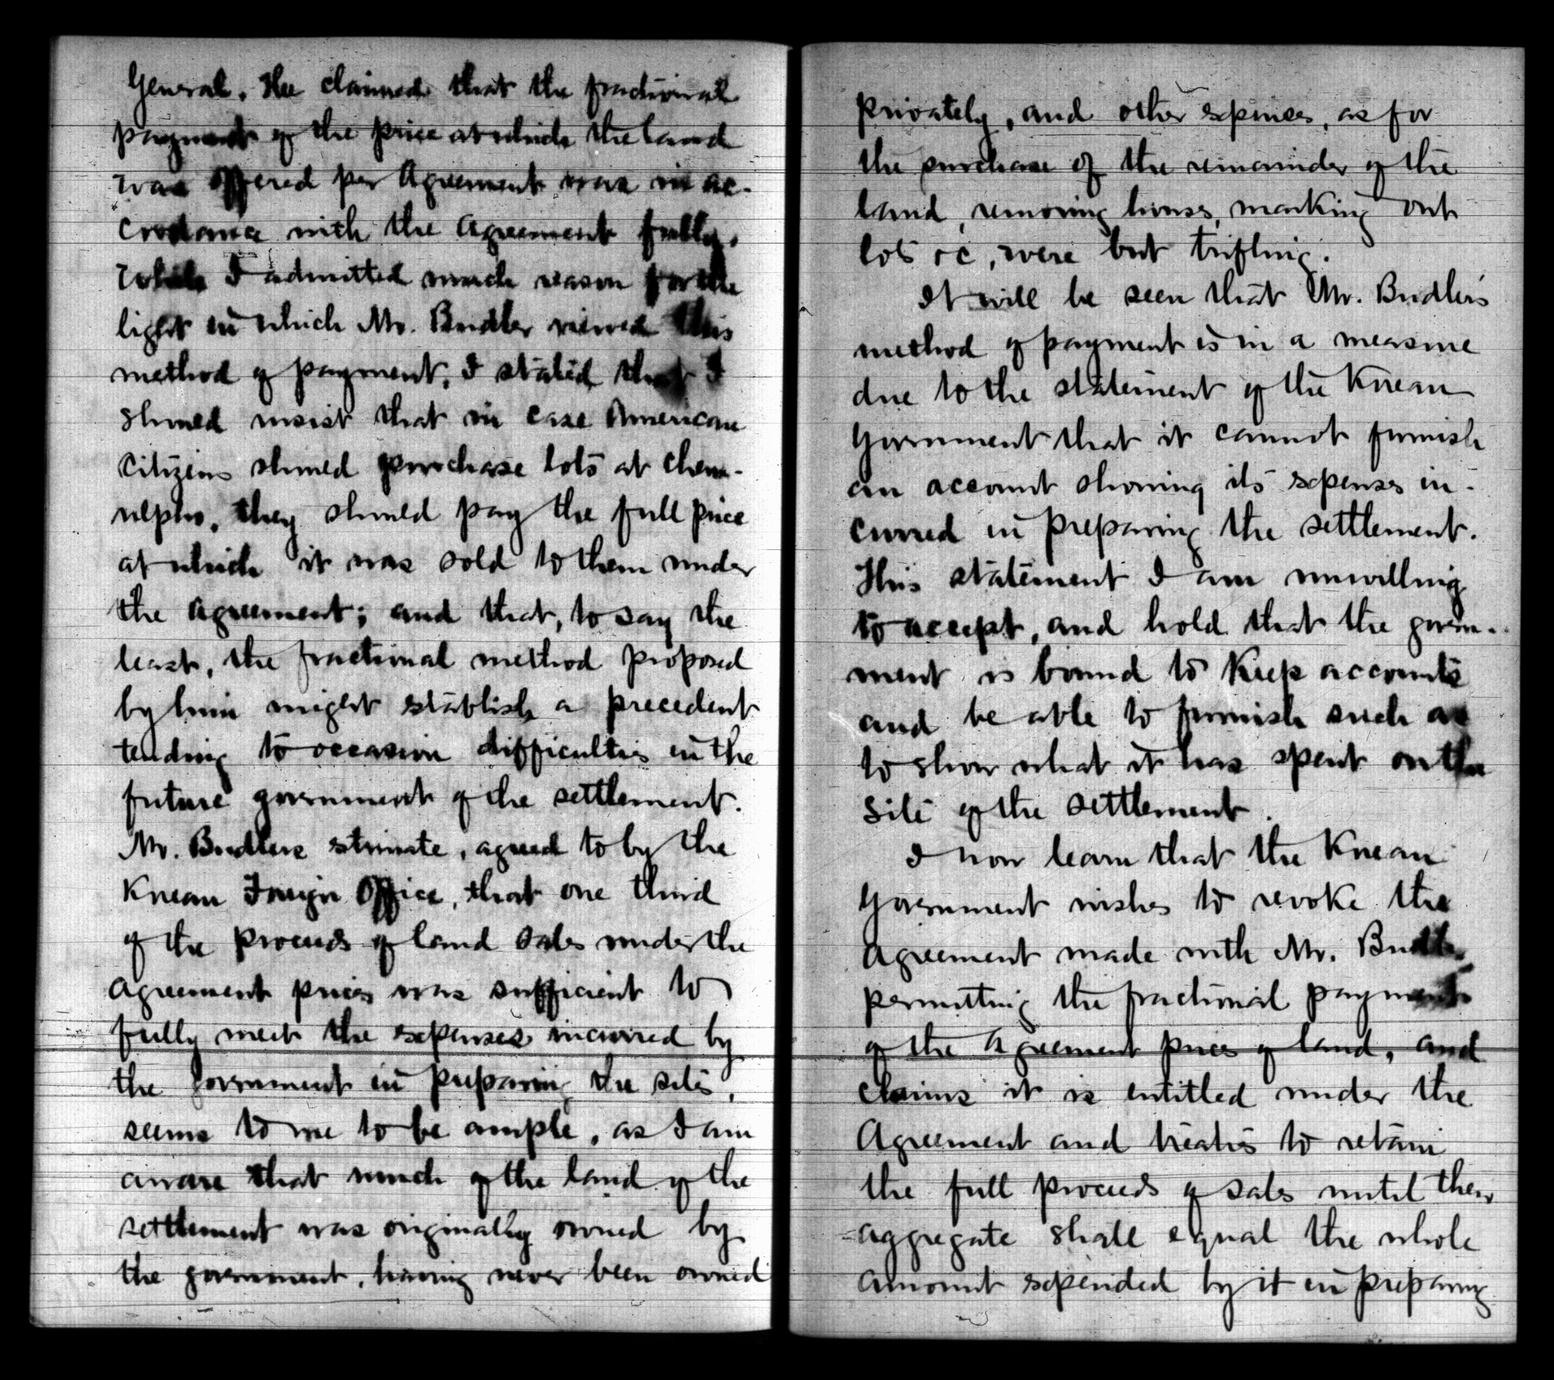 General. He claimed that the fractional
payment of the price at which the land
was offered per Agreement was in ac-
cordance with the Agreement fully.
While I admitted much reason for the
light in which Mr. Budler viewed this
method of payment, I stated that I
should insist that in case American
Citizens should purchase lots at Chem-
ulpho, they should pay the full price
at which it was sold to them under
the Agreement; and that, to say the
least, the fractional method proposed
by him might establish a precedent
tending to occasion difficulties in the
future government of the settlement.
Mr. Budlers estimate, agreed to by the
Korean Foreign Office, that one third
of the proceeds of land sales under the
Agreement prices was sufficient to
fully meet the expenses incurred by
the government in preparing the site,
seems to me to be ample, as I am
aware that much of the land of the
settlement was originally owned by
the government, having never been owned
privately, and other expenses, as for
the purchase of the remainder of the
land, removing houses, marking out
lots &c, were but trifling.
It will be seen that Mr. Budler's
method of payment is in a measure
due to the statement of the Korean
Government that it cannot furnish
an account showing its expenses in-
curred in preparing the settlement.
This statement I am unwilling
to accept, and hold that the govern-
ment is bound to keep accounts
and be able to furnish such as
to show what it has spent on the
site of the settlement.
I now learn that the Korean
Government wishes to revoke the
Agreement made with Mr. Budler
permitting the fractional payment
of the Agreement prices of land, and
claims it is entitled under the
Agreement and treaties to retain
the full proceeds of sales until their
aggregate shall equal the whole
amount expended by it in preparing